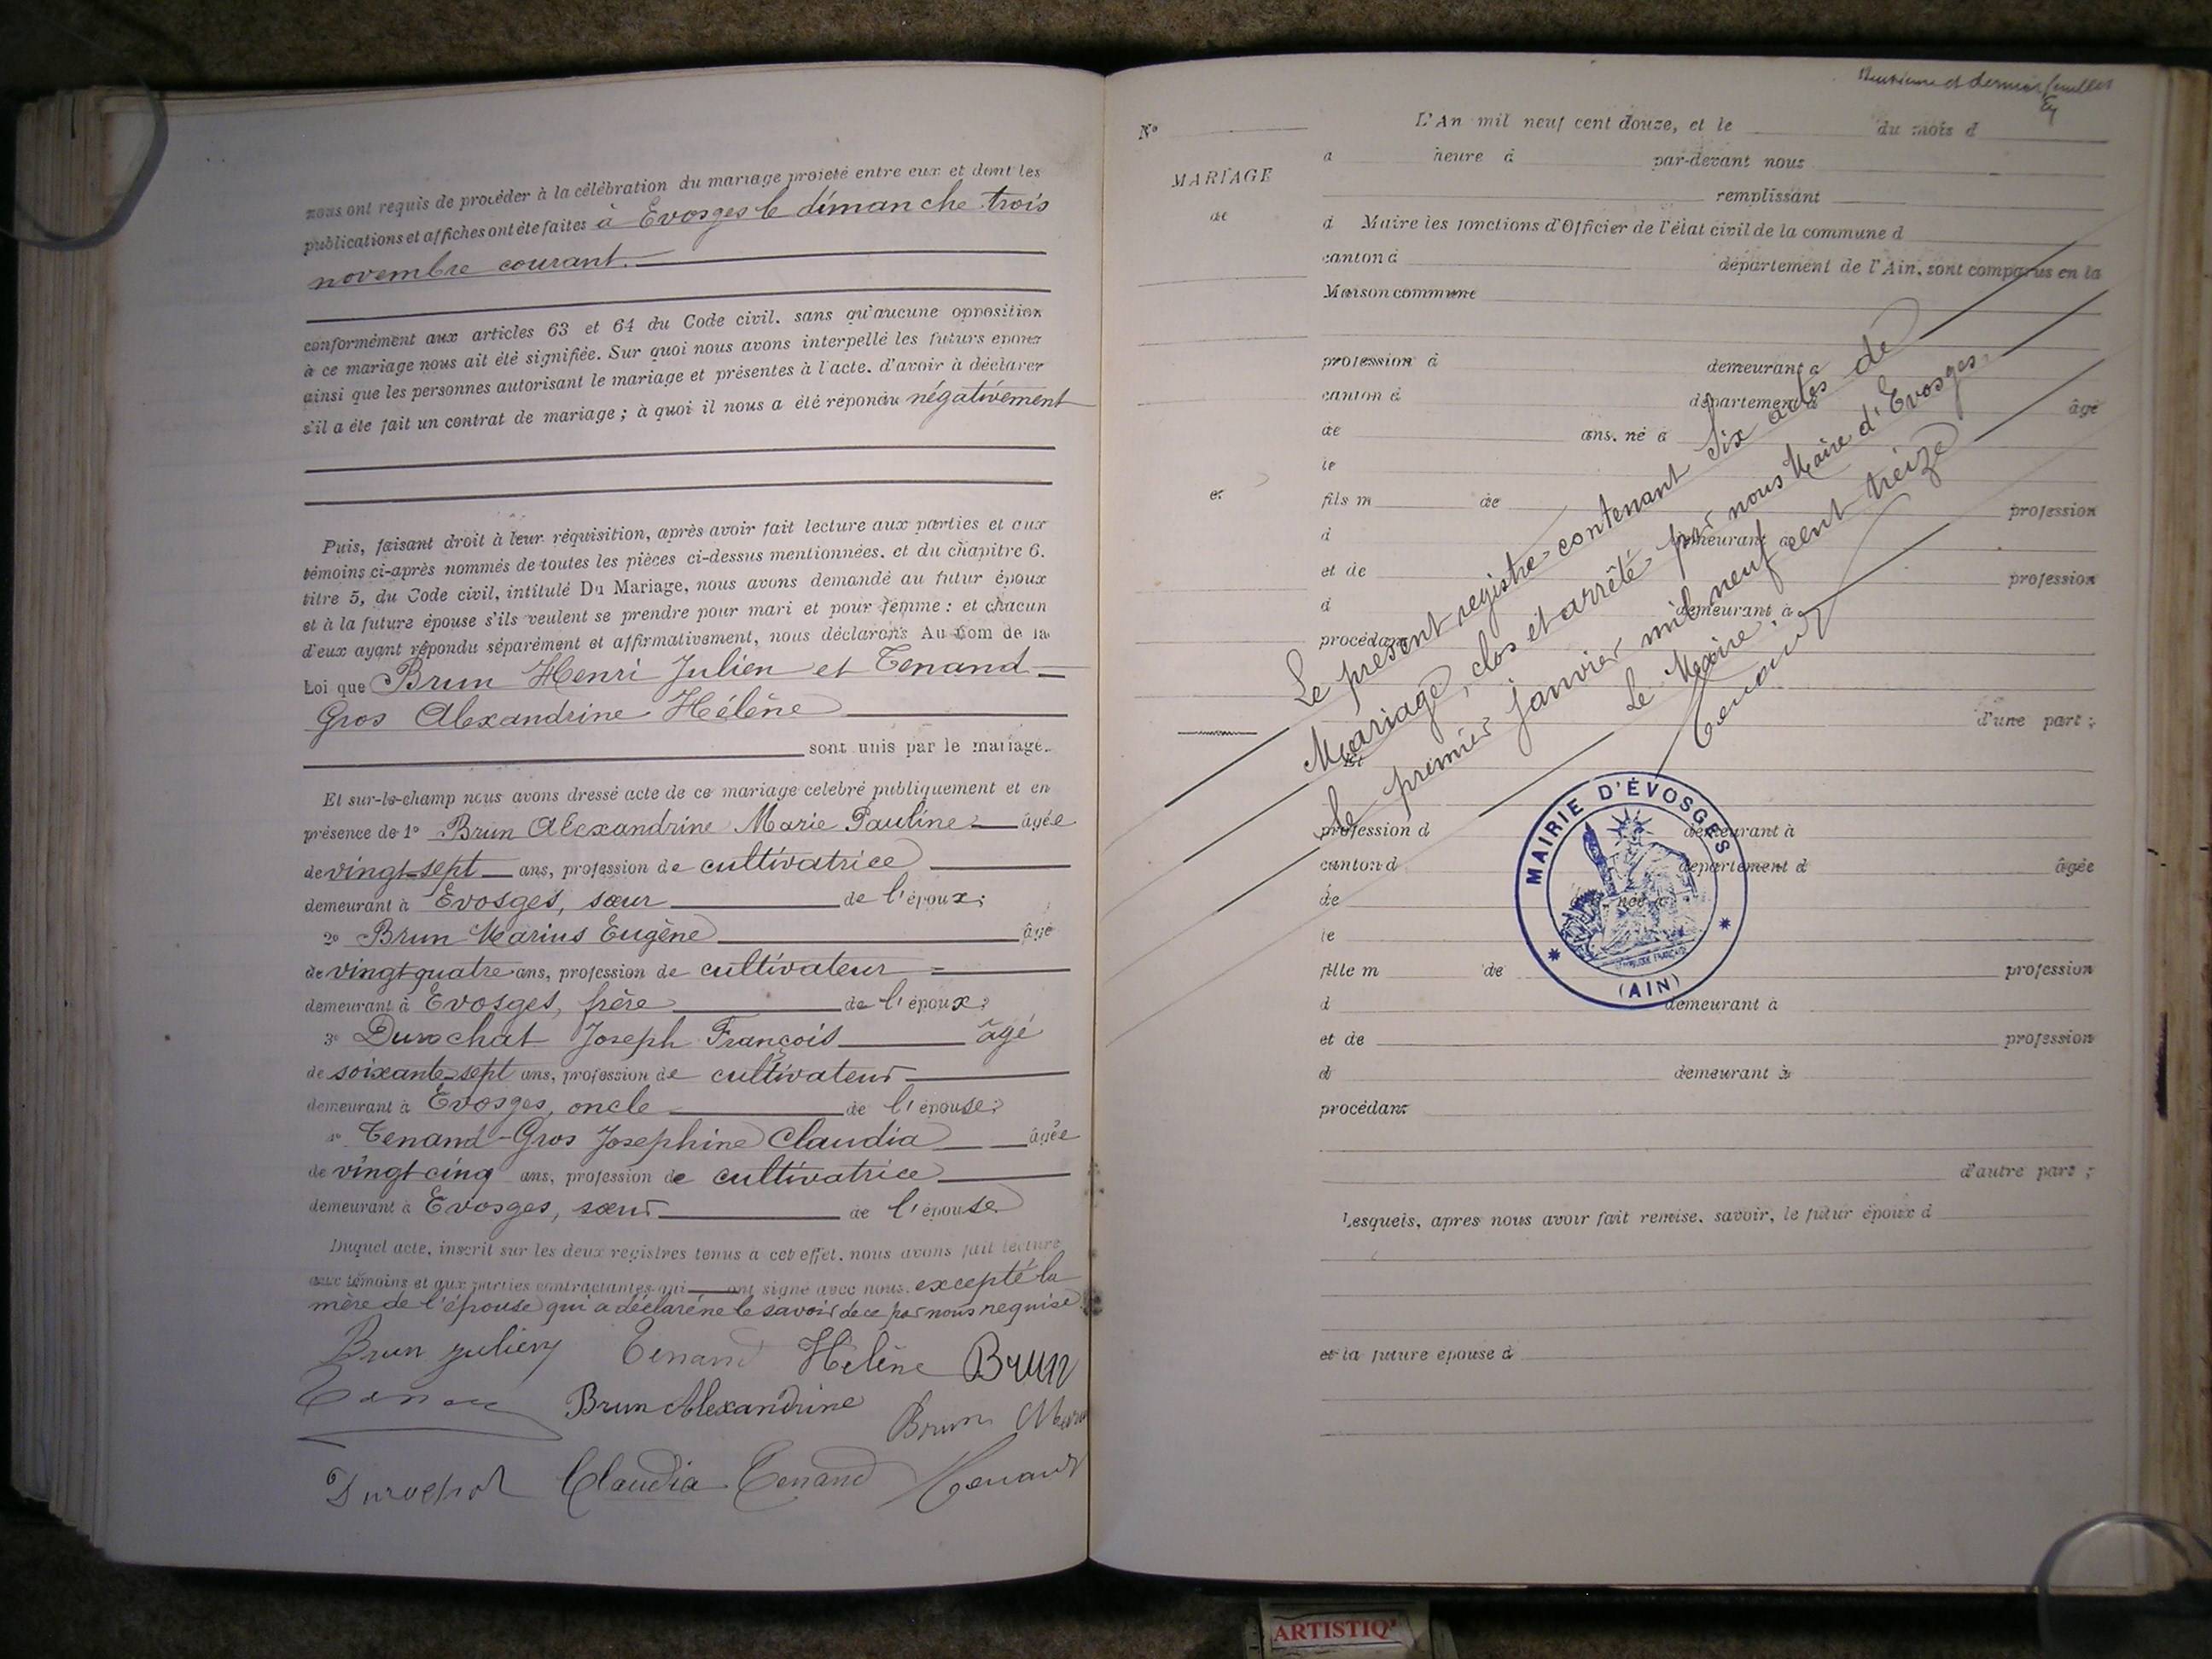 nous ont requis de procéder à la célébration du mariage projeté entre eux et dont les
publications et affiches ont été faites à Evosges le dimanche trois
novembre courant.
conformément aux articles 63 et 64 du Code civil, sans qu'aucune opposition
à ce mariage nous ait été signifiée. Sur quoi nous avons interpellé les futurs époux
ainsi que les personnes autorisant le mariage et présentes à l'acte, d'avoir à déclarer
s'il a été fait un contrat de mariage ; à quoi il nous a été répondu négativement
Puis, faisant droit à leur réquisition, après avoir fait lecture aux parties et aux
témoins ci-après nommés de toutes les pièces ci-dessus mentionnées, et du chapitre 6,
titre 5, du Code civil, intitulé Du Mariage, nous avons demandé au futur époux
et à la future épouse s'ils veulent se prendre pour mari et pour femme : et chacun
d'eux ayant répondu séparément et affirmativement, nous déclarons Au nom de la
Loi que Brun Henri Julien et Tenand-
Gros Alexandrine Hélène
sont unis par le mariage.
Et sur-le-champ nous avons dressé acte de ce mariage célébré publiquement et en
présence de 1° Brun Alexandrine Marie Pauline âgée
de vingt-sept ans, profession de cultivatrice
demeurant à Evosges, sœur de l'époux ;
2° Brun Marius Eugène âgé
de vingt quatre ans, profession de cultivateur
demeurant à Evosges, frère de l'époux ;
3° Durochat Joseph François âgé
de soixante-sept ans, profession de cultivateur
demeurant à Evosges, oncle de l'épouse ;
4° Tenand-Gros Josephine Claudia âgée
de vingt cinq ans, profession de cultivatrice
demeurant à Evosges, sœur de l'épouse
Duquel acte, inscrit sur les deux registres tenus à cet effet, nous avons fait lecture
aux témoins et aux parties contractantes qui ont signé avec nous, excepté la
mère de l'épouse qui a déclaré ne le savoir de ce par nous requise.
Brun Julien Tenand Hélène Brun
Brun Alexandrine Brun
Durochat Claudia Tenand Tenand
et dernier feuillet
N°
MARIAGE
de
et
L'An mil neuf cent douze, et le du mois d
à heure à par-devant nous
remplissant
d Maire les fonctions d'Officier de l'état civil de la commune d
canton d département de l'Ain, sont comparus en la
Maison commune
profession d demeurant à
canton d département d âgé
de ans, né à
le
fils m de profession
d demeurant à
et de profession
d demeurant à
procédant
d'une part ;
Et
profession d demeurant à
canton d département d âgée
de née à
le
fille m de profession
d demeurant à
et de profession
d demeurant à
procédant
d'autre part ;
Lesquels, après nous avoir fait remise, savoir, le futur époux d
et la future épouse d
Le présent registre contenant six actes de
Mariage, clos et arrêté par nous Maire d'Evosges
le premier janvier mil neuf cent treize
Le Maire,
Tenand
MAIRIE D'ÉVOSGES
(AIN)
ARTISTIQ